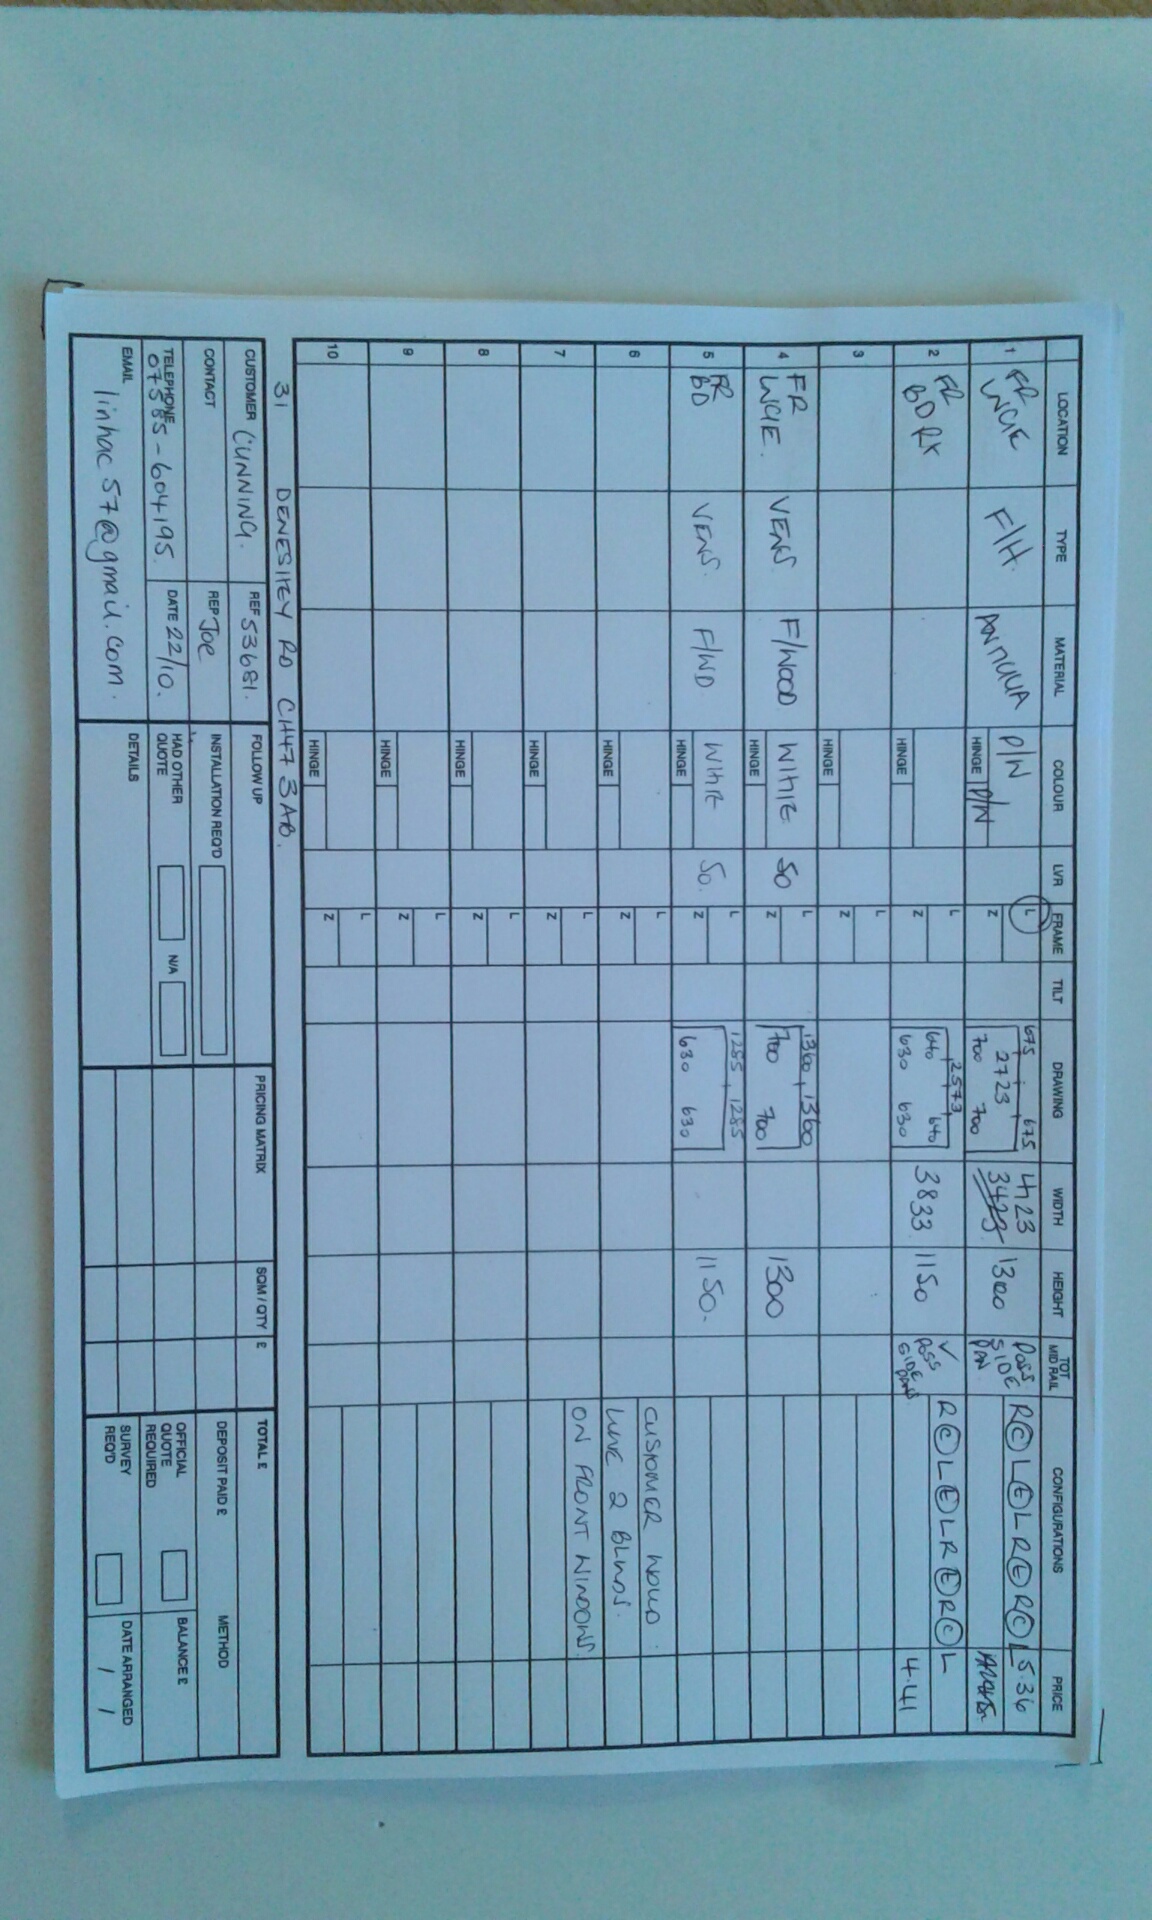 LOCATION TYPE MATERIAL COLOUR LVR FRAME TILT DRAWING WIDTH HEIGHT TOT MID RAIL CONFIGURATIONS PRICE
1 FR LNGE F/H. P/W L 675 675 4123 1300 Pass SIDE PAN R C L E L R E R C L 5.36
HINGE P/W Z 2723 3423
700 700
2 FR BDRX L 2573 3833 1150 ✓ PASS SIDE PANS R C L E L R E R C L
HINGE Z 640 640 4.41
630 630
3 L
HINGE Z
4 FR LNGE. VENS F/WOOD WHITE 50 L 1360, 1360 1300
HINGE Z 700 700
5 FR BD VENS. F/WD WHITE 50. L 1285, 1285 1150.
HINGE Z 630 630
6 L CUSTOMER WOULD
HINGE Z LIKE 2 BLINDS.
7 L ON FRONT WINDOWS.
HINGE Z
8 L
HINGE Z
9 L
HINGE Z
10 L
HINGE Z
31 RD CH47 3AB.
CUSTOMER CUNNING. REF 53681.
CONTACT REP Joe
TELEPHONE 07585-604195. DATE 22/10.
EMAIL linhac57@gmail.com.
FOLLOW UP
INSTALLATION REQ'D
HAD OTHER QUOTE N/A
DETAILS
PRICING MATRIX SQM / QTY £
TOTAL £
DEPOSIT PAID £ METHOD
OFFICIAL QUOTE REQUIRED BALANCE £
SURVEY REQ'D DATE ARRANGED / /